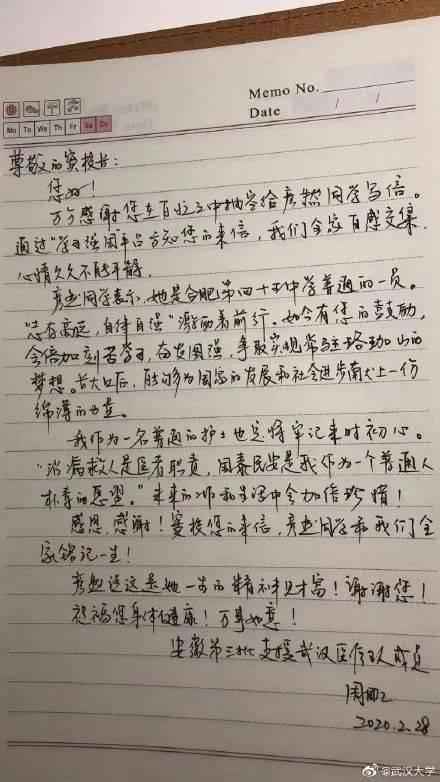 Memo No.
Mo Tu We Th Fr Sa Su
Date / /
尊敬的窦校长：
您好！
万分感谢您在百忙之中抽空给彦然同学写信。
通过“学习强国”平台方知您的来信，我们全家百感交集，
心情久久不能平静。
同学表示，她是合肥第四十五中学普通的一员。
“志存高远，自律自强”激励着前行。如今有您的鼓励，
会倍加刻苦学习，奋发图强，争取实现常驻珞珈山的
梦想。长大以后，能够为国家的发展和社会进步献上一份
绵薄的力量。
我作为一名普通的护士也定将牢记来时初心。
“治病救人是医者职责，国泰民安是我作为一个普通人
朴素的愿望。”未来的工作和生活中会加倍珍惜！
感恩，感谢！窦校长您的来信，同学和我们全
家铭记一生！
说这是她一生的精神财富！谢谢您！
祝福您身体健康！万事如意！
安徽第三批支援武汉医疗队成员
周
2020.2.28
@武汉大学